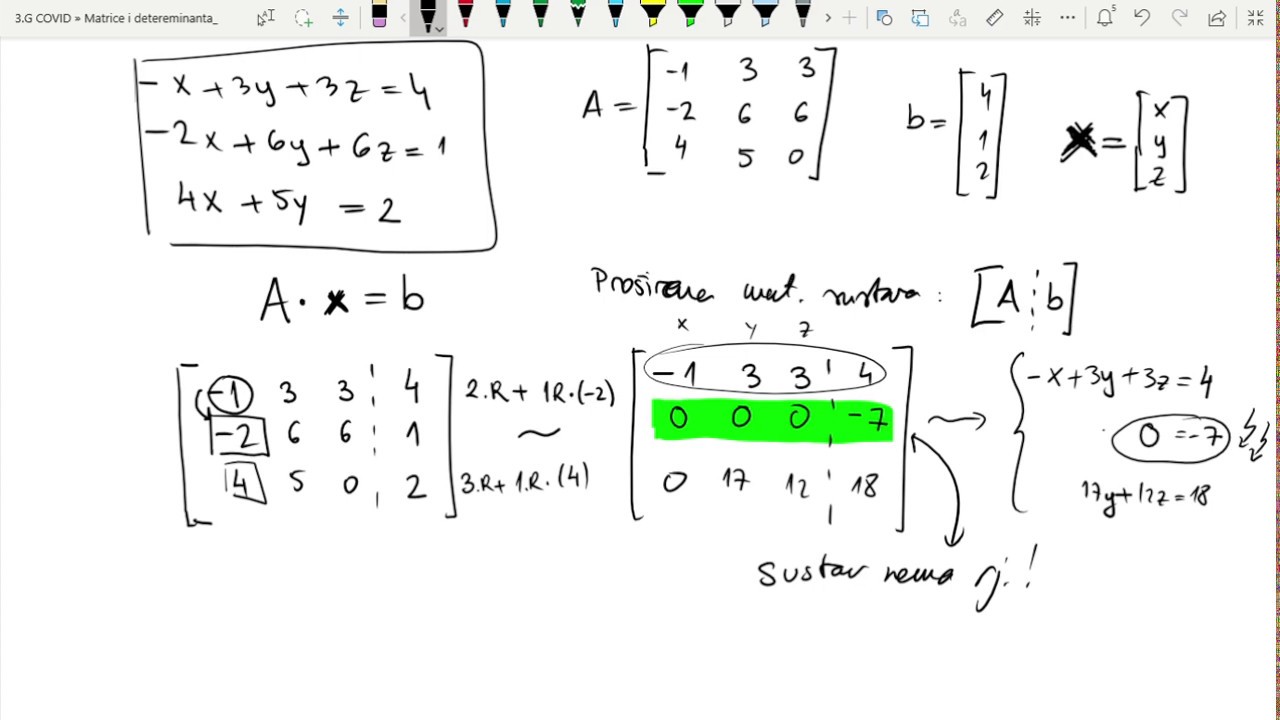 3.G COVID » Matrice i detereminanta_
5
-x+3y+3z=4
-2x+6y+6z=1
4x+5y =2
A= [-1 3 3
-2 6 6
4 5 0]
b= [4
1
2]
x= [x
y
z]
A·x=b
Proširena mat. sustava: [A¦b]
x y z
[-1 3 3 ¦ 4
-2 6 6 ¦ 1
4 5 0 ¦ 2]
2.R+1R·(-2)
~
3.R+1.R.(4)
[-1 3 3 ¦ 4
0 0 0 ¦ -7
0 17 12 ¦ 18]
{-x+3y+3z=4
0=-7
17y+12z=18
Sustav nema rj.!